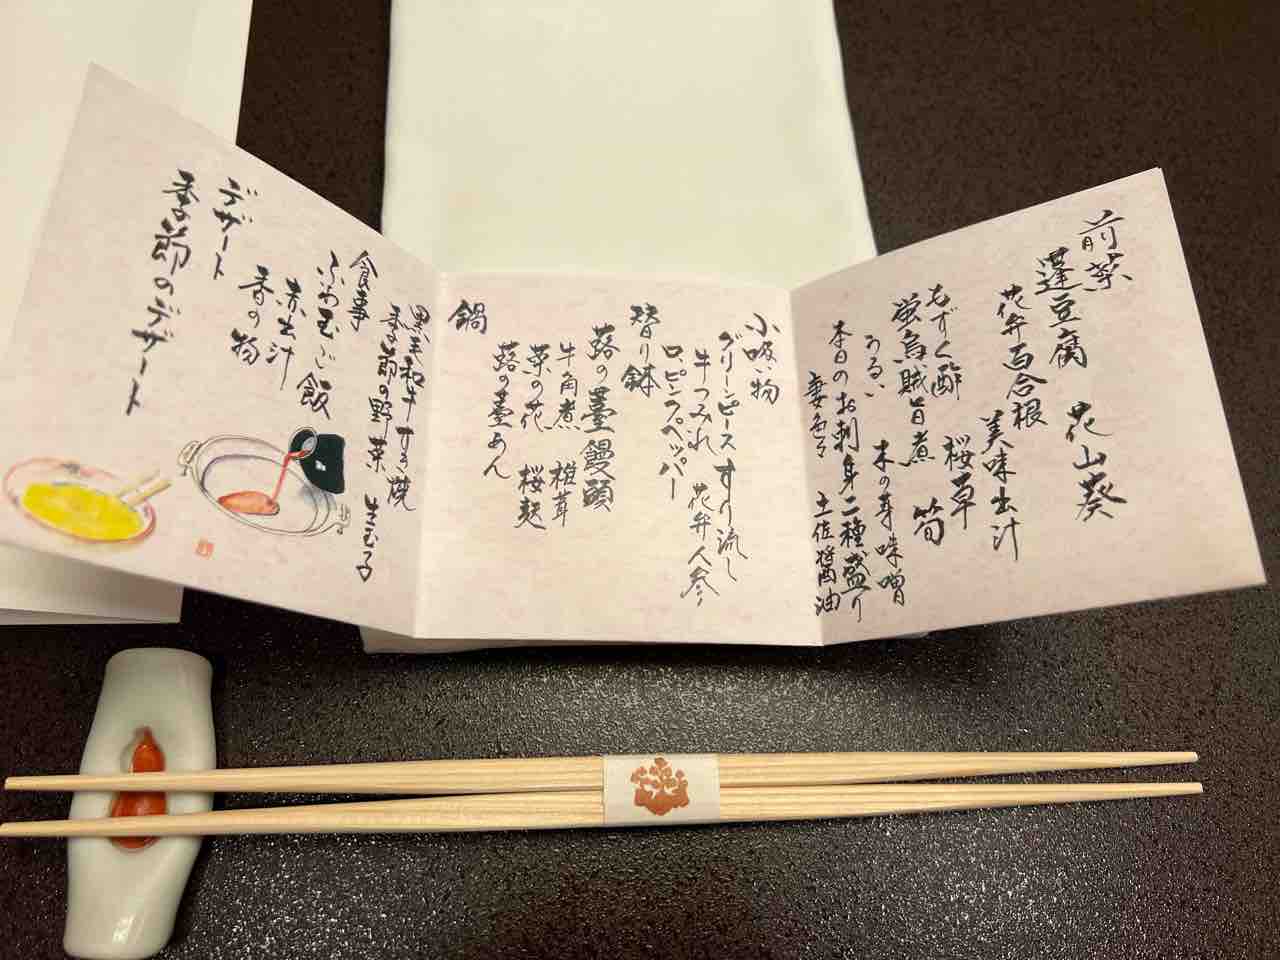 前菜
蓬豆腐 花山葵
花弁百合根 美味出汁
もずく酢 桜草
蛍烏賊旨煮 筍
うるい 木の芽味噌
本日のお刺身二種盛り
妻色々 土佐醤油
小吸い物
グリーンピースすり流し
牛つみれ 花弁人参
ロッピンクペッパー
替り鉢
蕗の薹饅頭
牛角煮 椎茸
菜の花 桜麩
蕗の薹あん
鍋
黒毛和牛すき焼
季節の野菜 生玉子
食事
ふわ玉ご飯
赤出汁
香の物
デザート
季節のデザート